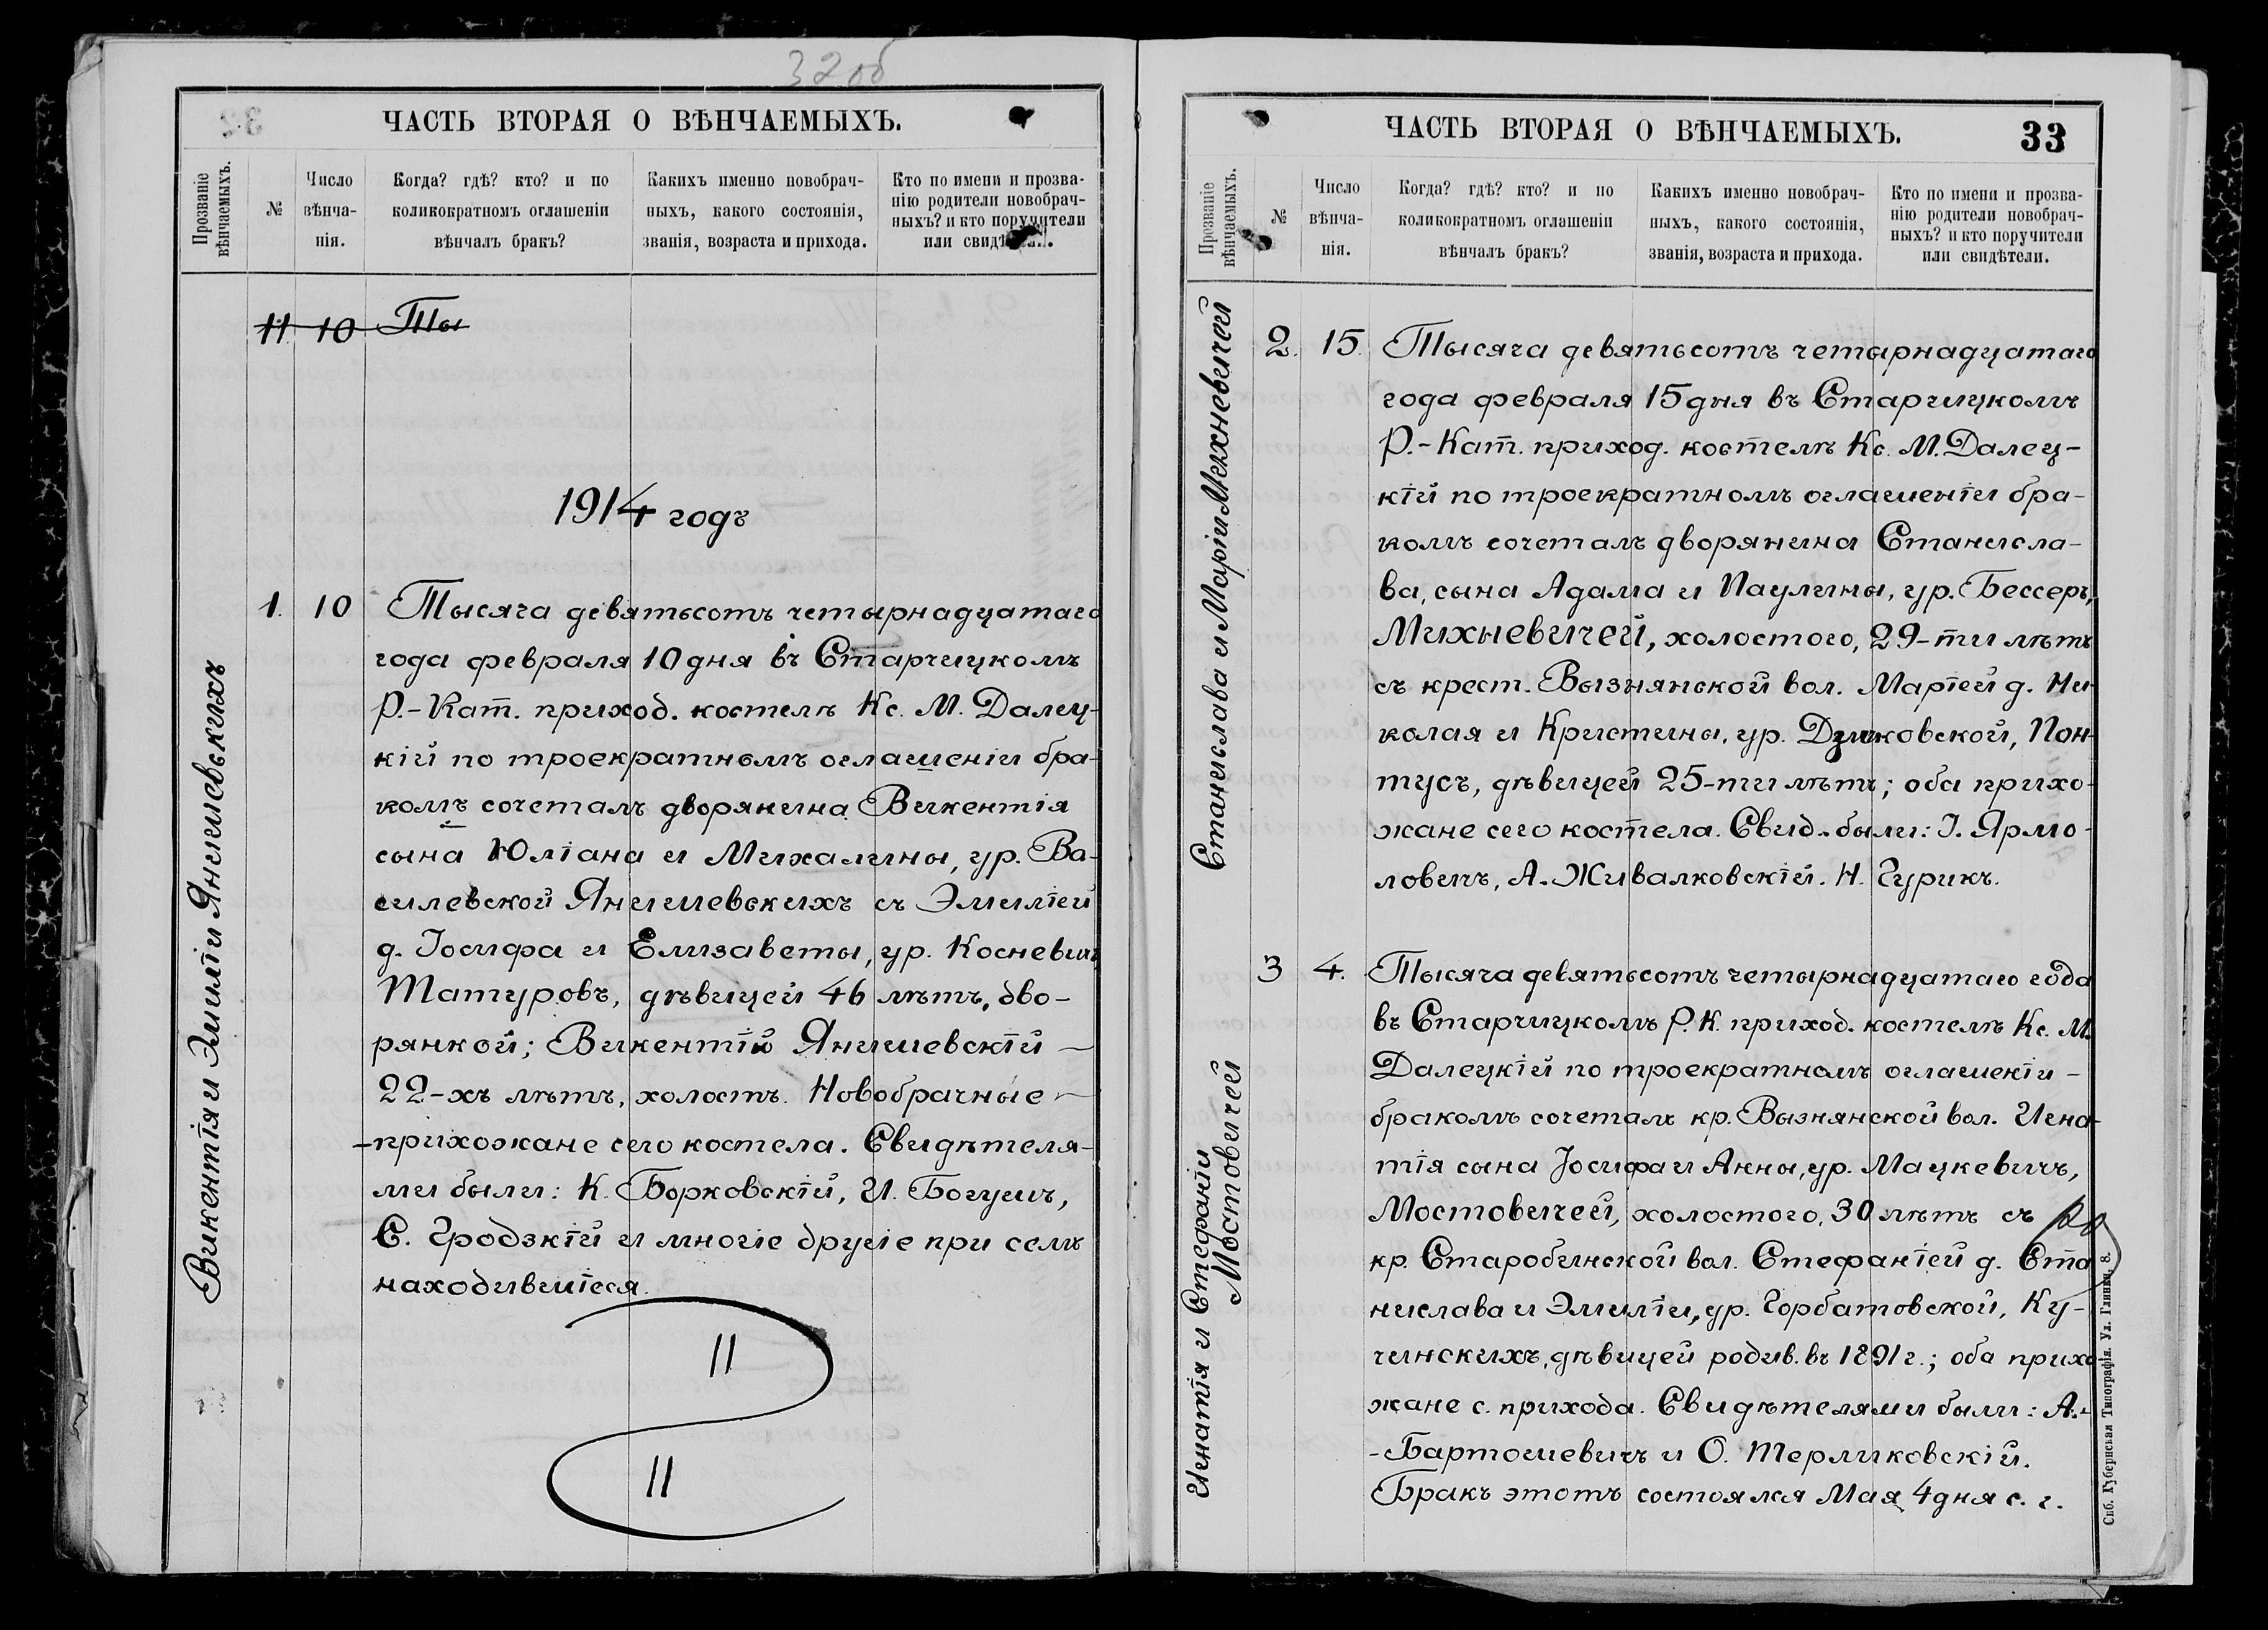 32об
ЧАСТЬ ВТОРАЯ О ВѢНЧАЕМЫХЪ.
Прозваніе
вѣнчаемыхъ.
№
Число
вѣнча-
нія.
Когда? гдѣ? кто? и по
коликократномъ оглашеніи
вѣнчалъ бракъ?
Какихъ именно новобрач-
ныхъ, какого состоянія,
званія, возраста и прихода.
Кто по имени и прозва-
нію родители новобрач-
ныхъ? и кто поручители
или свидѣтели.
11. 10 Ты
1914 годъ
Викентія и Эмиліи Янишевскихъ
1. 10 Тысяча девятьсотъ четырнадцатаго
года февраля 10 дня въ Старчицкомъ
Р.-Кат. приход. костелѣ Кс. М. Далец-
кій по троекратномъ оглашеніи бра-
комъ сочеталъ дворянина Викентія
сына Юліана и Михалины, ур. Ва-
силевской Янишевскихъ съ Эмиліей
д. Іосифа и Елизаветы, ур. Косневичъ
Татуровъ, дѣвицей 46 лѣтъ, дво-
рянкой; Викентій Янишевскій —
22-хъ лѣтъ, холостъ. Новобрачные —
-прихожане сего костела. Свидѣтеля-
ми были: К. Борковскій, И. Богушъ,
С. Гродзкій и многіе другіе при семъ
находившіеся.
ЧАСТЬ ВТОРАЯ О ВѢНЧАЕМЫХЪ.
33
Прозваніе
вѣнчаемыхъ.
№
Число
вѣнча-
нія.
Когда? гдѣ? кто? и по
коликократномъ оглашеніи
вѣнчалъ бракъ?
Какихъ именно новобрач-
ныхъ, какого состоянія,
званія, возраста и прихода.
Кто по имени и прозва-
нію родители новобрач-
ныхъ? и кто поручители
или свидѣтели.
Станислава и Маріи Михневичей
2. 15. Тысяча девятьсотъ четырнадцатаго
года февраля 15 дня въ Старчицкомъ
Р.-Кат. приход. костелѣ Кс. М. Далец-
кій по троекратномъ оглашеніи бра-
комъ сочеталъ дворянина Станисла-
ва, сына Адама и Паулины, ур. Бессеръ,
Михневичей, холостого, 29-ти лѣтъ
съ крест. Вызнянской вол. Маріей д. Ни-
колая и Кристины, ур. Дзиковской, Пон-
тусъ, дѣвицей 25-ти лѣтъ; оба прихо-
жане сего костела. Свид. были: І. Ярмо-
ловичъ, А. Живалковскій. Н. Гурикъ.
Игнатія и Стефаніи
Мостовичей
3 4. Тысяча девятьсотъ четырнадцатаго года
въ Старчицкомъ Р.К. приход. костелѣ Кс. М.
Далецкій по троекратномъ оглашеніи -
бракомъ сочеталъ кр. Вызнянской вол. Игна-
тія сына Іосифа и Анны, ур. Мацкевичъ,
Мостовичей, холостого, 30 лѣтъ съ
кр. Старобинской вол. Стефаніей д. Ста
нислава и Эмиліи, ур. Горбатовской, Ку-
чинскихъ, дѣвицей родив. въ 1891 г.; оба прихо-
жане с. прихода. Свидѣтелями были: А.-
-Бартошевичъ и О. Терликовскій.
Бракъ этотъ состоялся Мая 4 дня с. г.
Спб. Губернская Типографія. Ул. Глинки, 8.